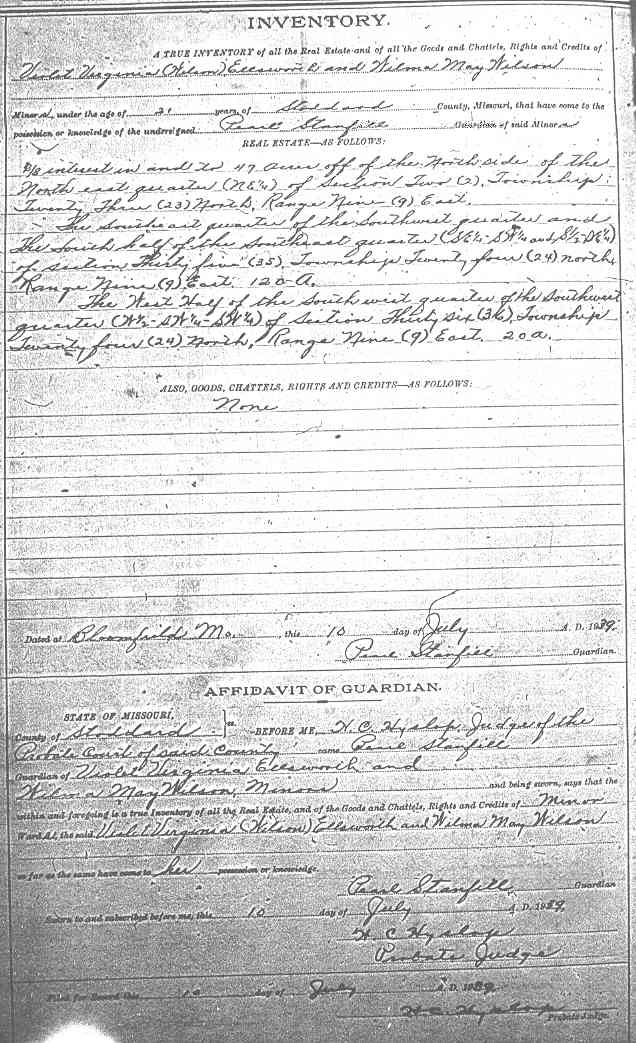 INVENTORY.
A TRUE INVENTORY of all the Real Estate and of all the Goods and Chattels, Rights and Credits of
Violet Virginia (Wilson) Ellsworth and Wilma May Wilson
Minors, under the age of 21 years, of Stoddard County, Missouri, that have come to the
possession or knowledge of the undersigned Pearl Stanfill Guardian of said Minors
REAL ESTATE—AS FOLLOWS:
interest in and to 47 acres off of the North side of the
North east quarter (NE¼) of Section Two (2), Township
Twenty Three (23) North, Range Nine (9) East.
The Southeast quarter of the Southwest quarter and
The South half of the Southeast quarter (SE¼-SW¼ and S½-SE¼)
of section Thirty five (35), Township Twenty four (24) north,
Range Nine (9) East. 120-A.
The West Half of the South west quarter of the Southwest
quarter (W½-SW¼-SW¼) of Section Thirty six (36), Township
Twenty four (24) North, Range Nine (9) East. 20a.
ALSO, GOODS, CHATTELS, RIGHTS AND CREDITS—AS FOLLOWS:
None
Dated at Bloomfield Mo. , this 10 day of July A. D. 1939.
Pearl Stanfill Guardian.
AFFIDAVIT OF GUARDIAN.
STATE OF MISSOURI, } ss.
County of Stoddard —BEFORE ME, H. C. Hyslop, Judge of the
Probate Court of said County came Pearl Stanfill
Guardian of Violet Virginia Ellsworth and
Wilma May Wilson, Minors and being sworn, says that the
within and foregoing is a true Inventory of all the Real Estate, and of the Goods and Chattels, Rights and Credits of Minor
Wards, the said Violet Virginia (Wilson) Ellsworth and Wilma May Wilson
so far as the same have come to her possession or knowledge.
Pearl Stanfill Guardian
Sworn to and subscribed before me, this 10 day of July A. D. 1939.
H. C. Hyslop
Probate Judge
Filed for Record this 10 day of July A. D. 1939.
H. C. Hyslop
Probate Judge.